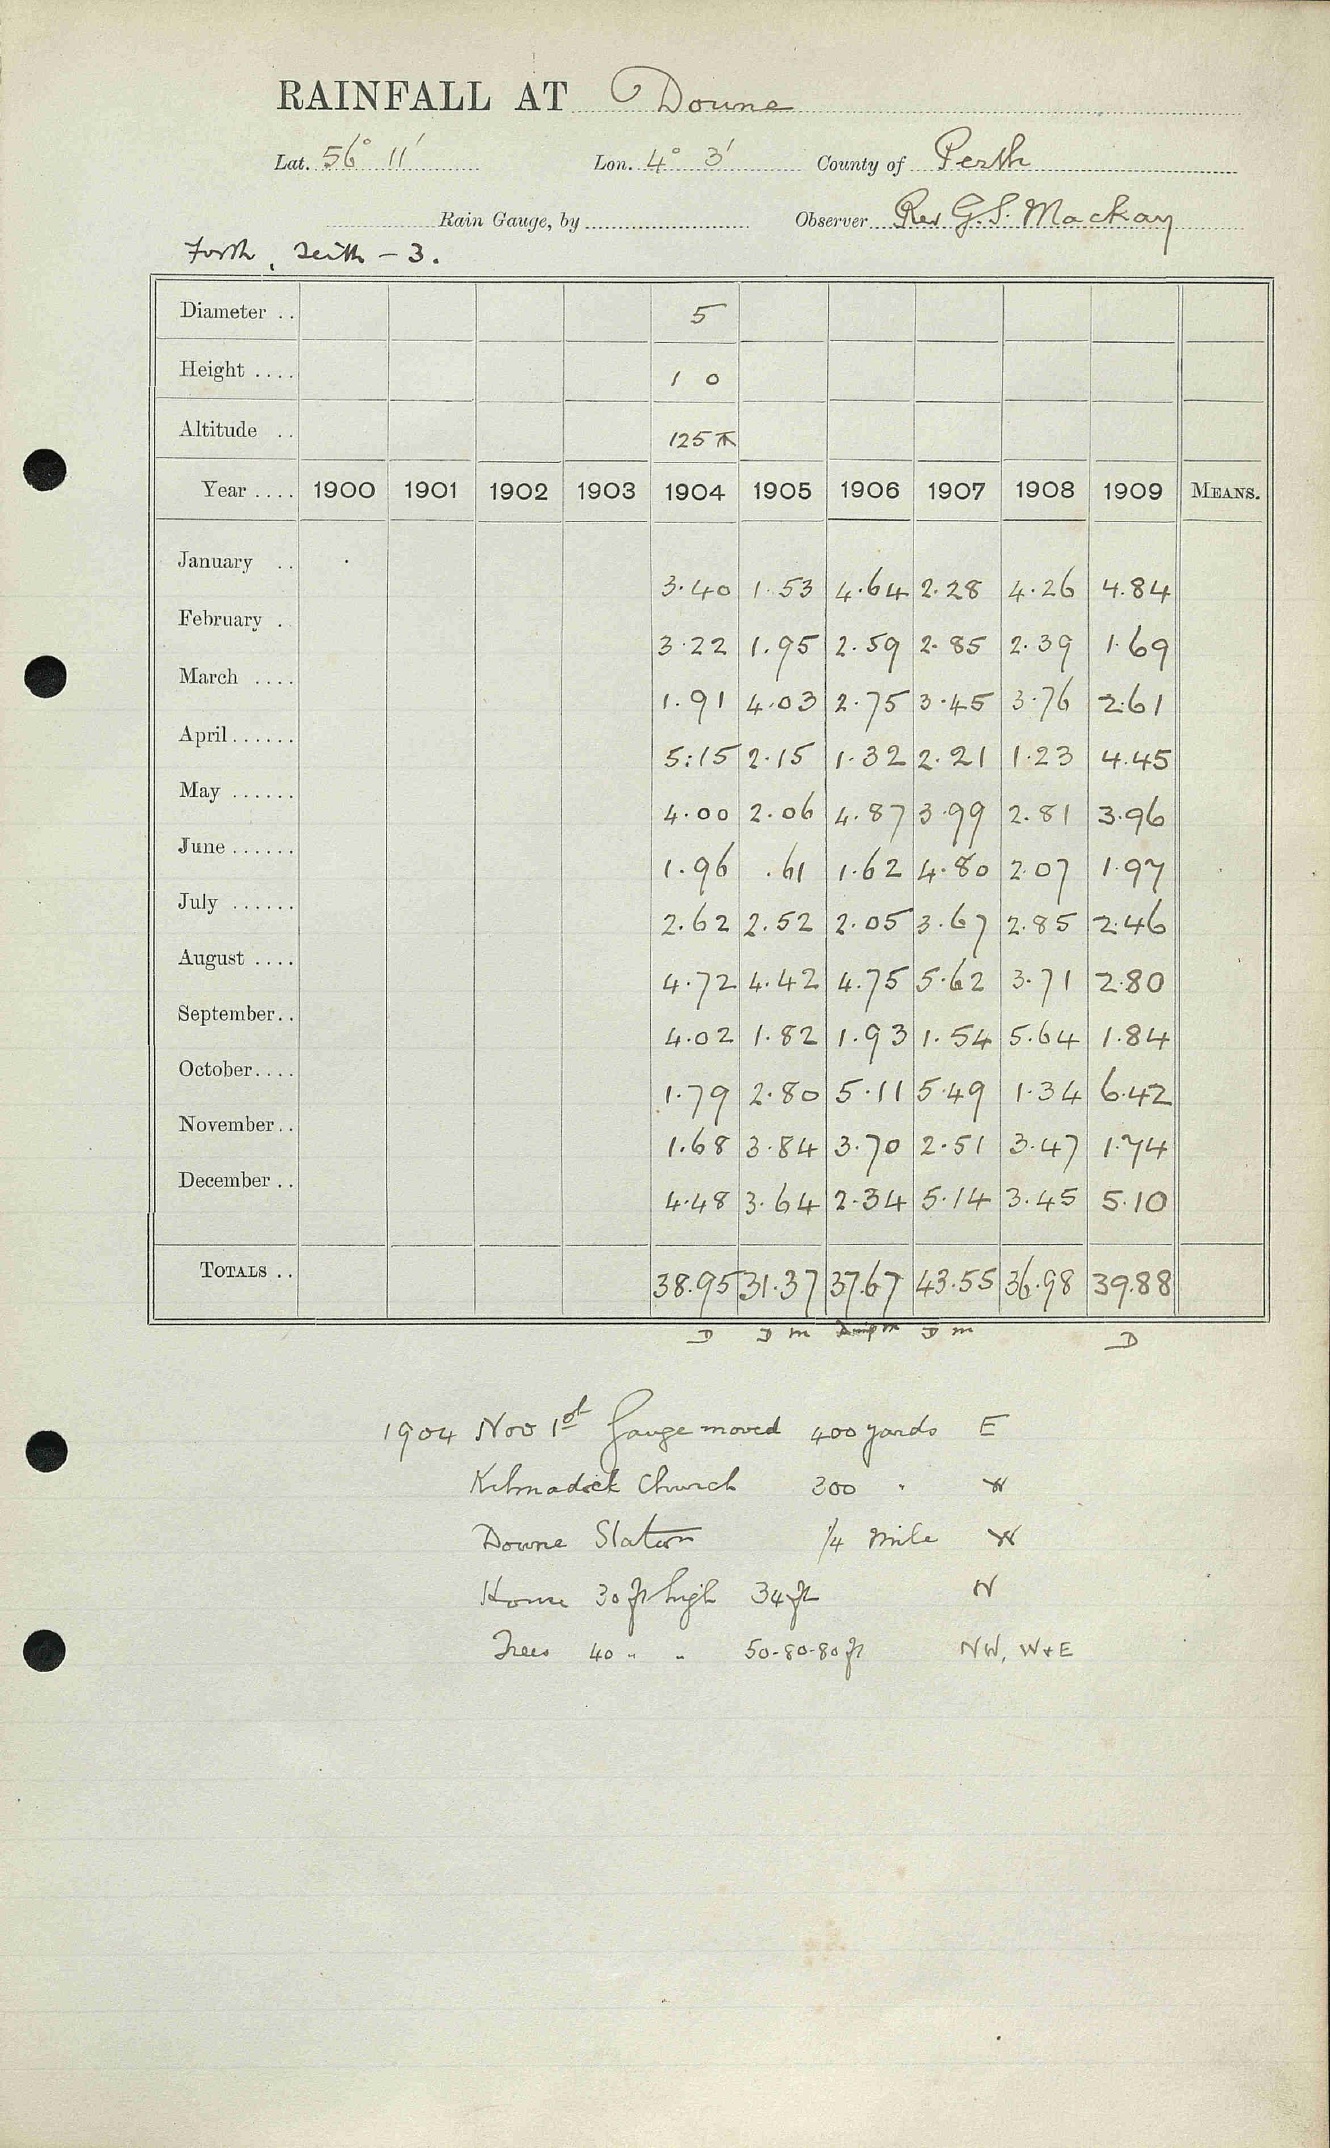 RAINFALL AT Doune
Lat. 56° 11' Lon. 4° 3' County of Perth
Rain Gauge, by Observer Rev G.S. Mackay
Forth, Teith – 3.
Diameter .. 5
Height .... 1 0
Altitude .. 125 ft
Year .... 1900 1901 1902 1903 1904 1905 1906 1907 1908 1909 MEANS.
January .. 3.40 1.53 4.64 2.28 4.26 4.84
February . 3.22 1.95 2.59 2.85 2.39 1.69
March .... 1.91 4.03 2.75 3.45 3.76 2.61
April...... 5.15 2.15 1.32 2.21 1.23 4.45
May ...... 4.00 2.06 4.87 3.99 2.81 3.96
June ...... 1.96 .61 1.62 4.80 2.07 1.97
July ...... 2.62 2.52 2.05 3.67 2.85 2.46
August .... 4.72 4.42 4.75 5.62 3.71 2.80
September.. 4.02 1.82 1.93 1.54 5.64 1.84
October.... 1.79 2.80 5.11 5.49 1.34 6.42
November.. 1.68 3.84 3.70 2.51 3.47 1.74
December .. 4.48 3.64 2.34 5.14 3.45 5.10
TOTALS .. 38.95 31.37 37.67 43.55 36.98 39.88
D D m D m D
1904 Nov 1st Gauge moved 400 yards E
Kilmadock Church 300 " W
Doune Station 1/4 mile W
House 30 ft high 34 ft N
Trees 40 " " 50-80-80 ft NW, W+E